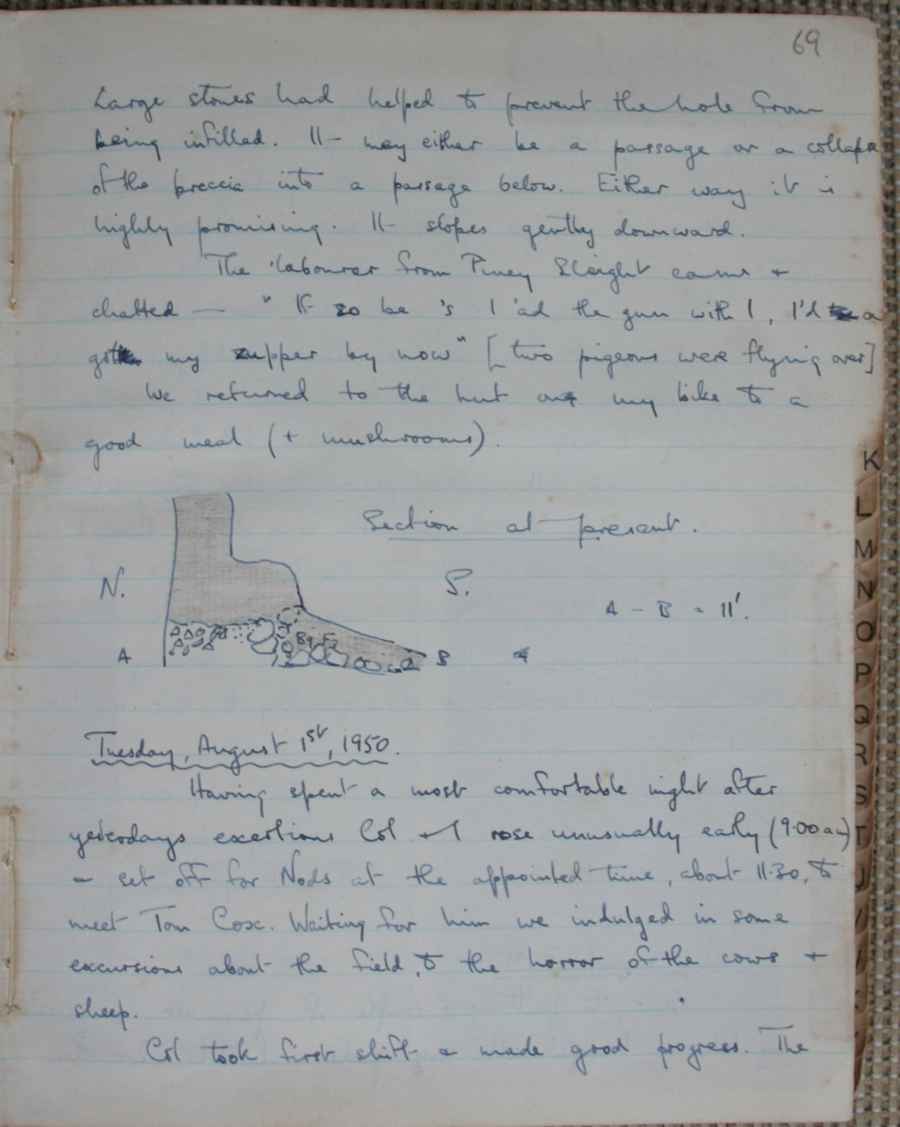 69
Large stones had helped to prevent the hole from
being infilled. It may either be a passage or a collapse
of the breccia into a passage below. Either way it is
highly promising. It slopes gently downward.
The labourer from Piney Sleight came +
chatted — "If zo be 's I 'ad the gun with I, I'd a
got my zupper by now" [two pigeons were flying over]
We returned to the hut on my bike to a
good meal (+ mushrooms).
Section at present.
N. S.
A - B = 11'.
A B
Tuesday, August 1st, 1950.
Having spent a most comfortable night after
yesterdays exertions Col + I rose unusually early (9.00am)
+ set off for Nods at the appointed time, about 11.30, to
meet Tom Cox. Waiting for him we indulged in some
excursions about the field, to the horror of the cows +
sheep.
Col took first shift + made good progress. The
K
L
M
N
O
P
Q
R
S
T
U